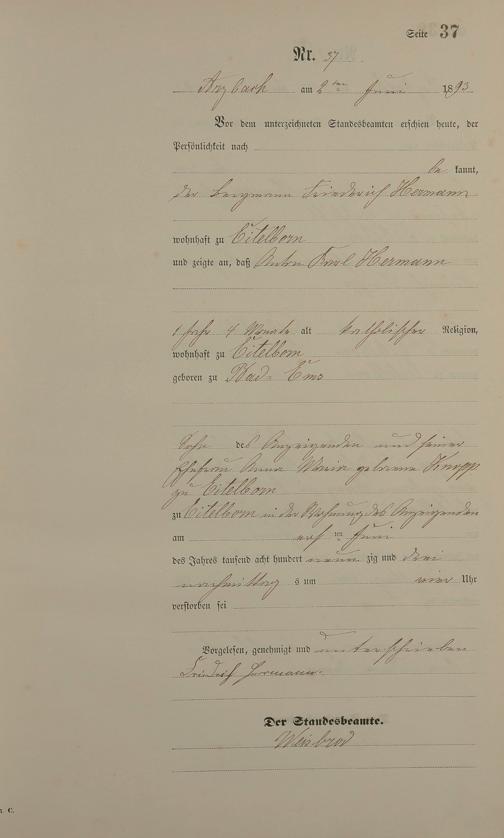 Seite 37
Nr. 37
Arzbach am 2ten Juni 1893
Vor dem unterzeichneten Standesbeamten erschien heute, der
Persönlichkeit nach
be kannt,
der Bergmann Friederich Hermann
wohnhaft zu Eitelborn
und zeigte an, daß Anton Karl Hermann
1 Jahr 4 Monate alt katholischer Religion,
wohnhaft zu Eitelborn
geboren zu Bad-Ems
Sohn des Anzeigenden und seiner
Ehefrau Anna Maria geborene Knopp
zu Eitelborn
zu Eitelborn in der Wohnung des Anzeigenden
am ersten Juni
des Jahres tausend acht hundert neun zig und drei
nachmittag s um vier Uhr
verstorben sei
Vorgelesen, genehmigt und unterschrieben
Friedrich Hermann.
Der Standesbeamte.
Weisbrod
C.